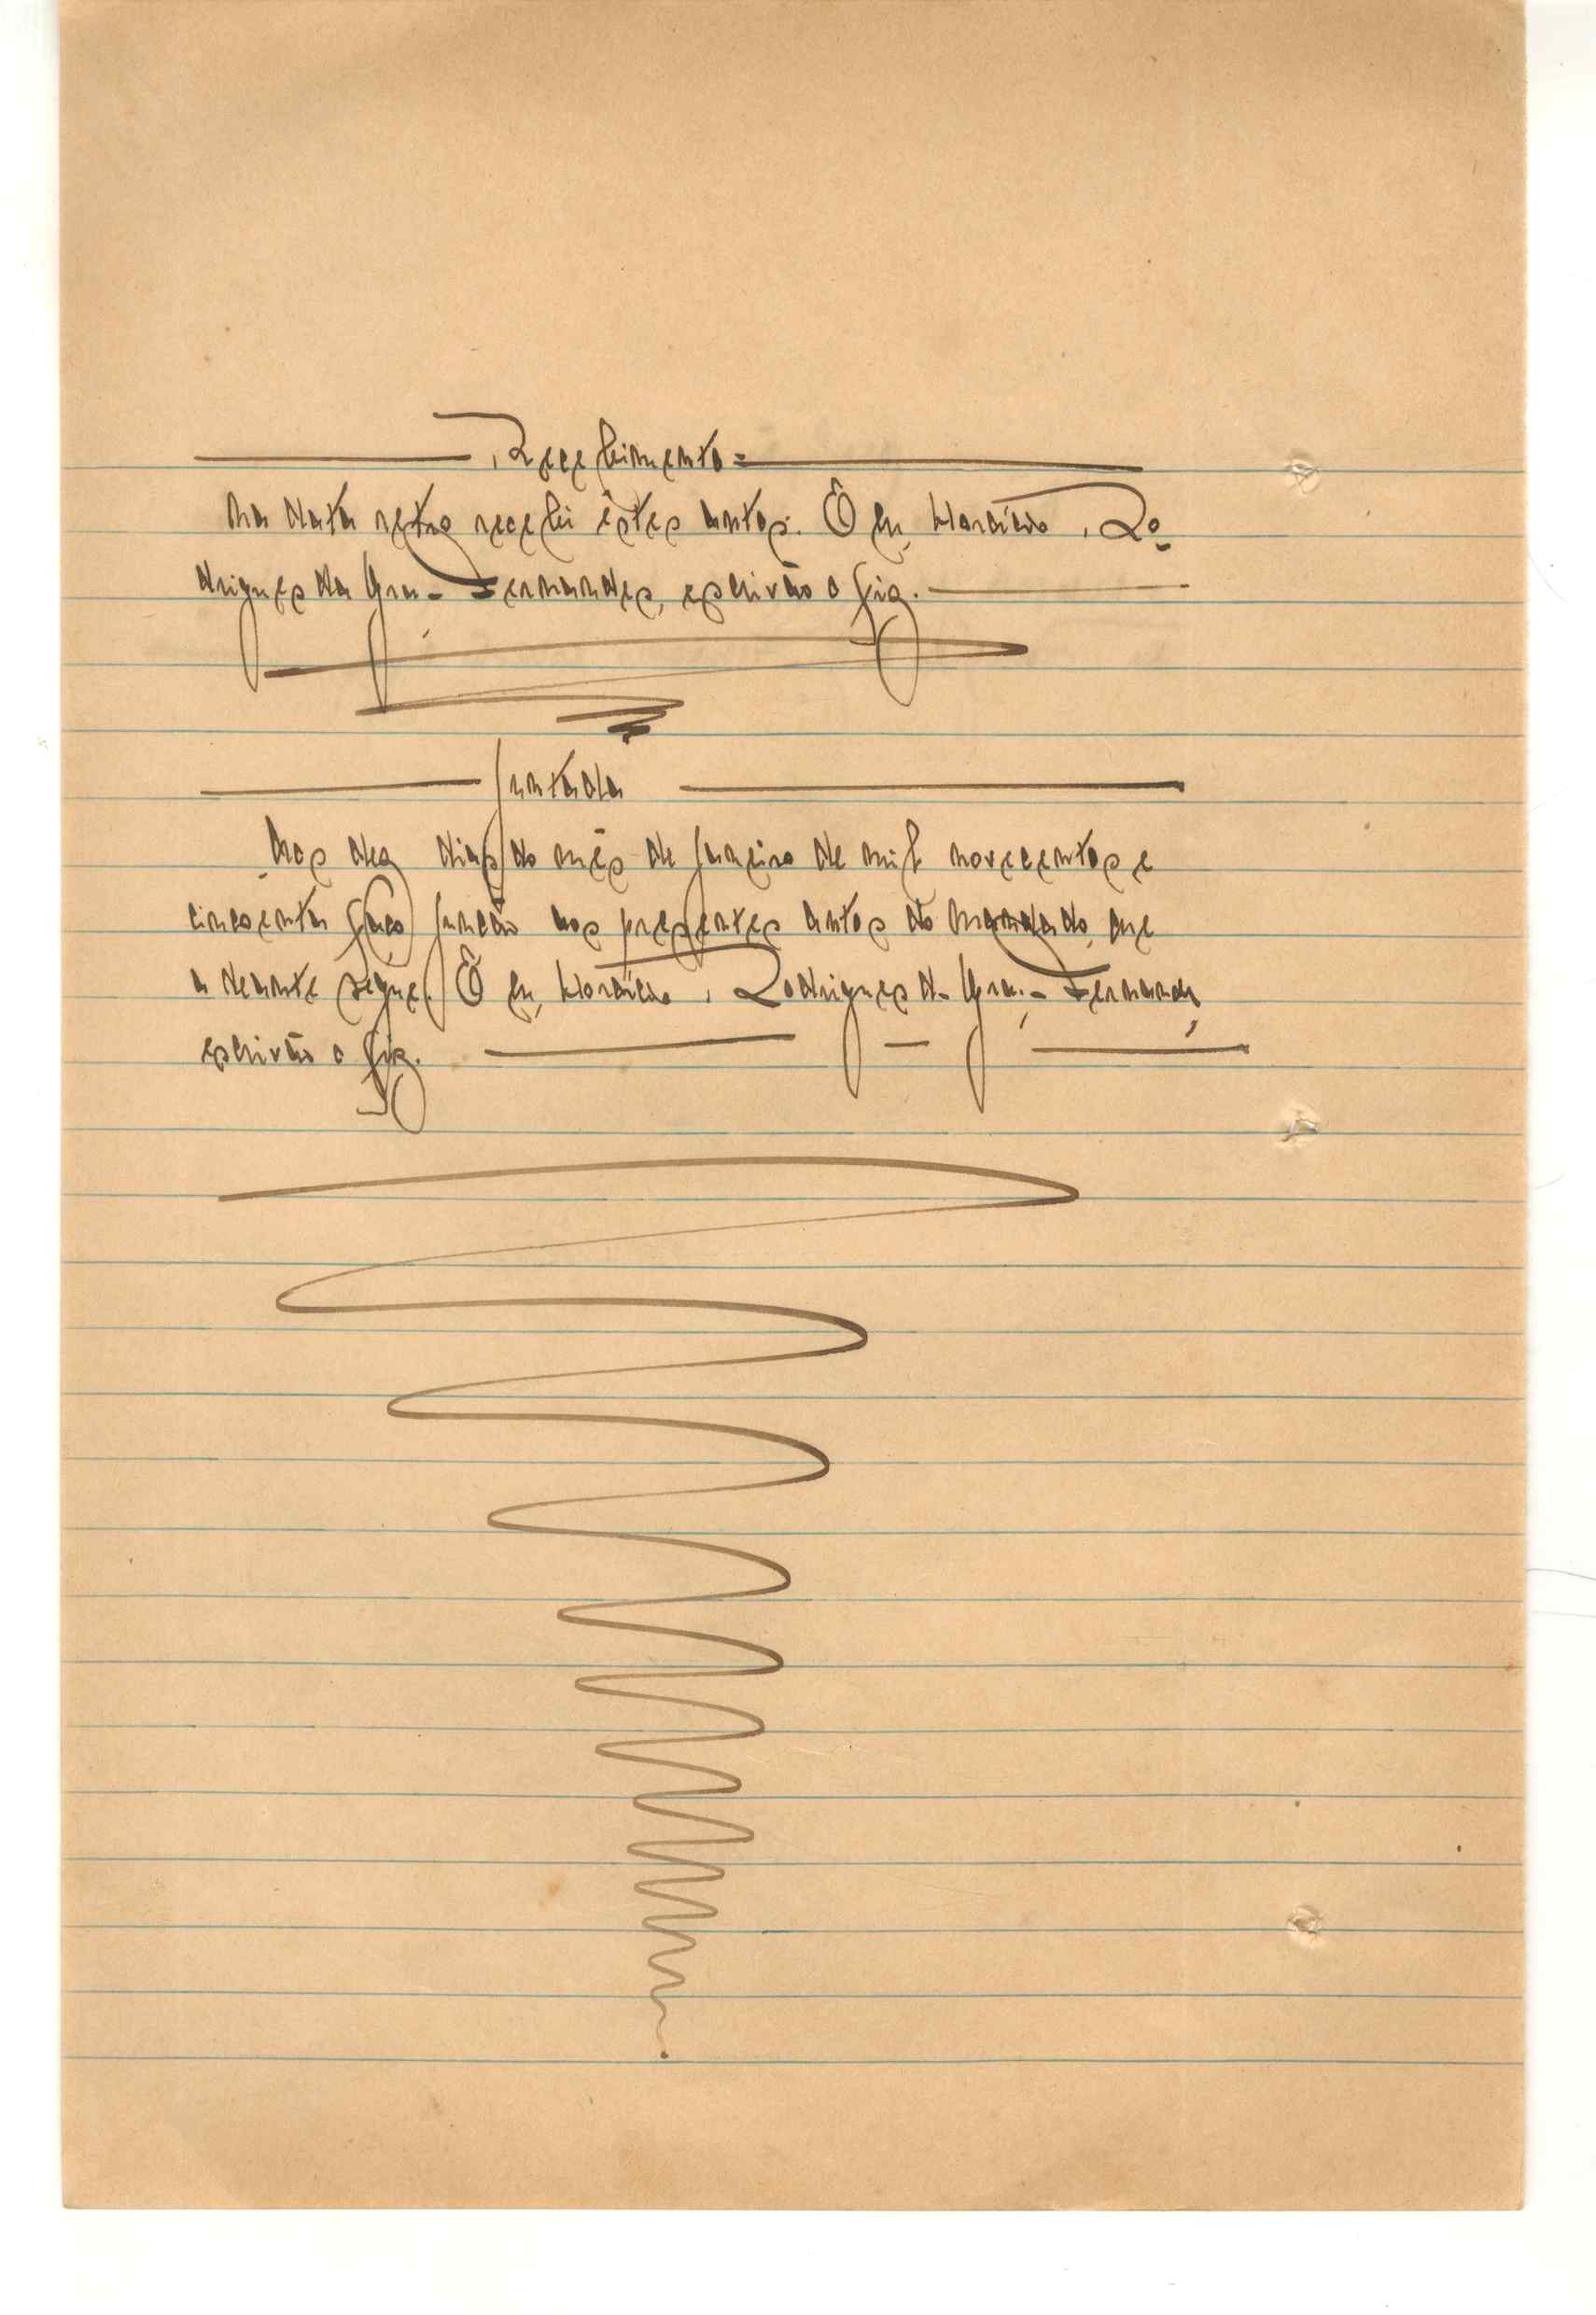 Recebimento =
Na data retro recebi êstes autos. E eu, Horácio Ro-
drigues da Gra. Fernandes, escrivão o fiz.
Juntada
Aos dez dias do mês de Janeiro de mil novecentos e
cincoenta faço junção aos presentes autos do mandado que
a deante segue. E eu, Horácio Rodrigues d. Gra. Fernandes,
escrivão o fiz.